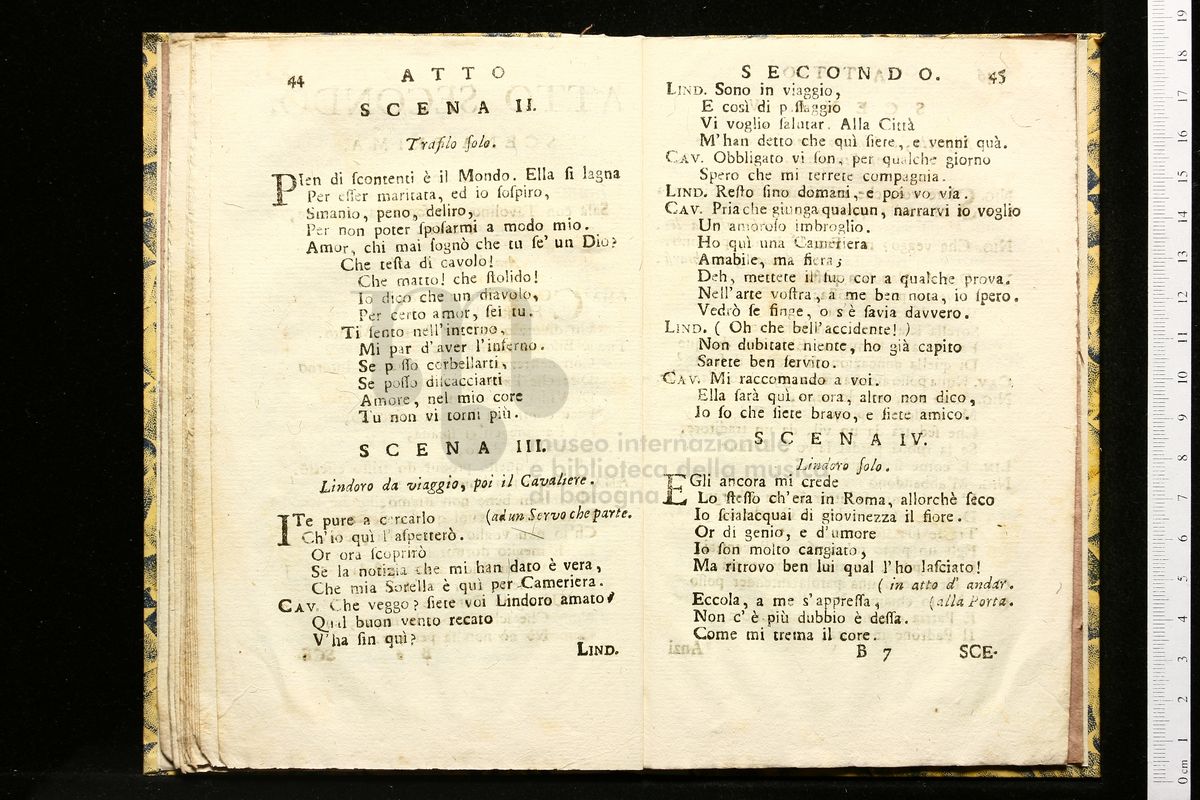 44
ATTO
SCENA II.
Trasilo solo.
PIen di scontenti è il Mondo. Ella si lagna
Per esser maritata, ed io sospiro,
Smanio, peno, deliro,
Per non poter sposarmi a modo mio.
Amor, chi mai sognò che tu se' un Dio?
Che testa di cavolo!
Che matto! che stolido!
Io dico che un diavolo,
Per certo amor, sei tu.
Ti sento nell'interno,
Mi par d'aver l'inferno.
Se p sso corbellarti,
Se posso discacciarti
Amore, nel mio core
Tu non vi torni più.
SCENA III.
Lindoro da viaggio, poi il Cavaliere.
ITe pure a cercarlo (ad un Servo che parte.
Ch'io quì l'aspetterò.
Or ora scoprirò
Se la notizia che mi han dato è vera,
Che mia Sorella è quì per Cameriera.
CAV. Che veggo? siete voi Lindoro amato?
Qual buon vento recato
V'ha fin quì?
LIND.
SECONDO. 45
LIND. Sono in viaggio,
E così di p ssaggio
Vi voglio salutar. Alla Città
M'han detto che quì siete, e venni quà.
CAV. Obbligato vi son, per qualche giorno
Spero che mi terrete compagnia.
LIND. Resto sino domani, e poi vo via.
CAV. Pria che giunga qualcun, narrarvi io voglio
Un amoroso imbroglio.
Ho quì una Cameriera
Amabile, ma fiera;
Deh, mettete il suo cor a qualche prova.
Nell'arte vostra, a me ben nota, io spero.
Vedrò se finge, o s'è savia davvero.
LIND. ( Oh che bell'accidente! )
Non dubitate niente, ho già capito
Sarete ben servito.
CAV. Mi raccomando a voi.
Ella sarà quì or ora, altro non dico,
Io so che siete bravo, e siete amico.
SCENA IV.
Lindoro solo.
EGli ancora mi crede
Lo stesso ch'era in Roma, allorchè seco
Io scialacquai di giovinezza il fiore.
Or di genio, e d'umore
Io son molto cangiato,
Ma ritrovo ben lui qual l'ho lasciato!
( in atto d' andar.
Eccola, a me s'appressa, (alla Porta.
Non c'è più dubbio è dessa.
Come mi trema il core.
B 7 SCE-
museo internazionale
e biblioteca della musica
di bologna
0 cm 1 2 3 4 5 6 7 8 9 10 11 12 13 14 15 16 17 18 19